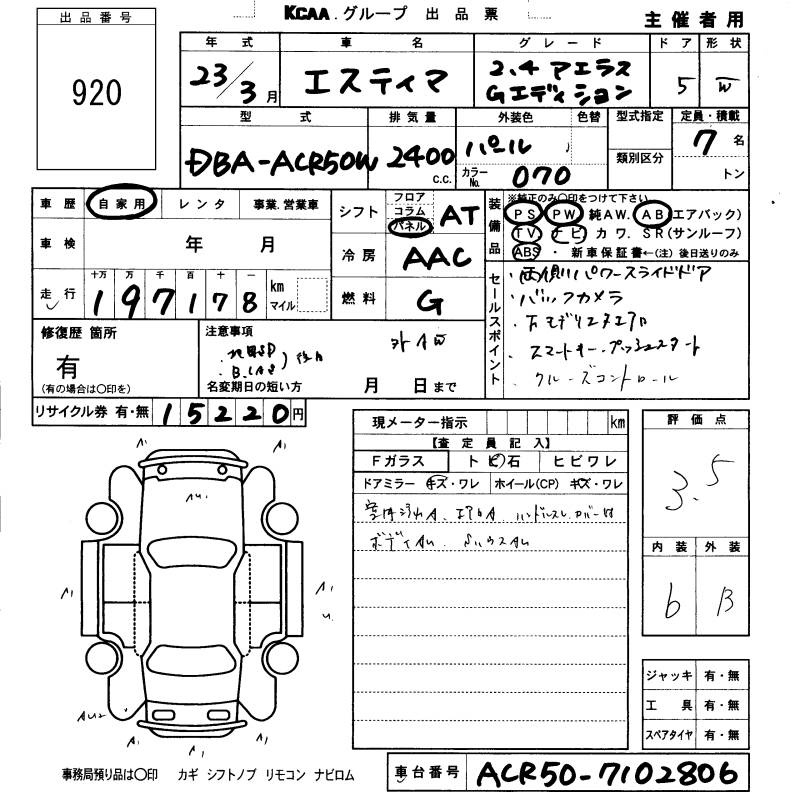 KCAA グループ 出品票
主催者用
出品番号
920
年式 車名 グレード ドア 形状
23/3月 エスティマ 2.4 アエラス Gエディション 5 W
型式 排気量 外装色 色替 型式指定 定員・積載
DBA-ACR50W 2400 c.c. パール カラーNo. 070 類別区分 7名 トン
車歴 自家用 レンタ 事業.営業車
シフト フロア コラム パネル AT
装備品 ※純正のみ○印をつけて下さい
PS PW 純AW. AB(エアバック)
TV ナビ カワ. SR(サンルーフ)
ABS・新車保証書←(注)後日送りのみ
車検 年 月
冷房 AAC
走行 十万 万 千 百 十 一
197178 km マイル
燃料 G
セールスポイント
・両側パワースライドドア
・バックカメラ
・スマートキー.プッシュスタート
・クルーズコントロール
修復歴 箇所
有
(有の場合は○印を)
注意事項
名変期日の短い方 月 日まで
リサイクル券 有・無 15220円
現メーター指示 km
【査定員記入】
Fガラス トビ石 ヒビワレ
ドアミラー キズ・ワレ ホイール(CP) キズ・ワレ
評価点
3.5
内装 外装
6 B
A1
AU1
A1 A1
U
AU2
A1 A1
ジャッキ 有・無
工具 有・無
スペアタイヤ 有・無
事務局預り品は○印 カギ シフトノブ リモコン ナビロム
車台番号 ACR50-7102806